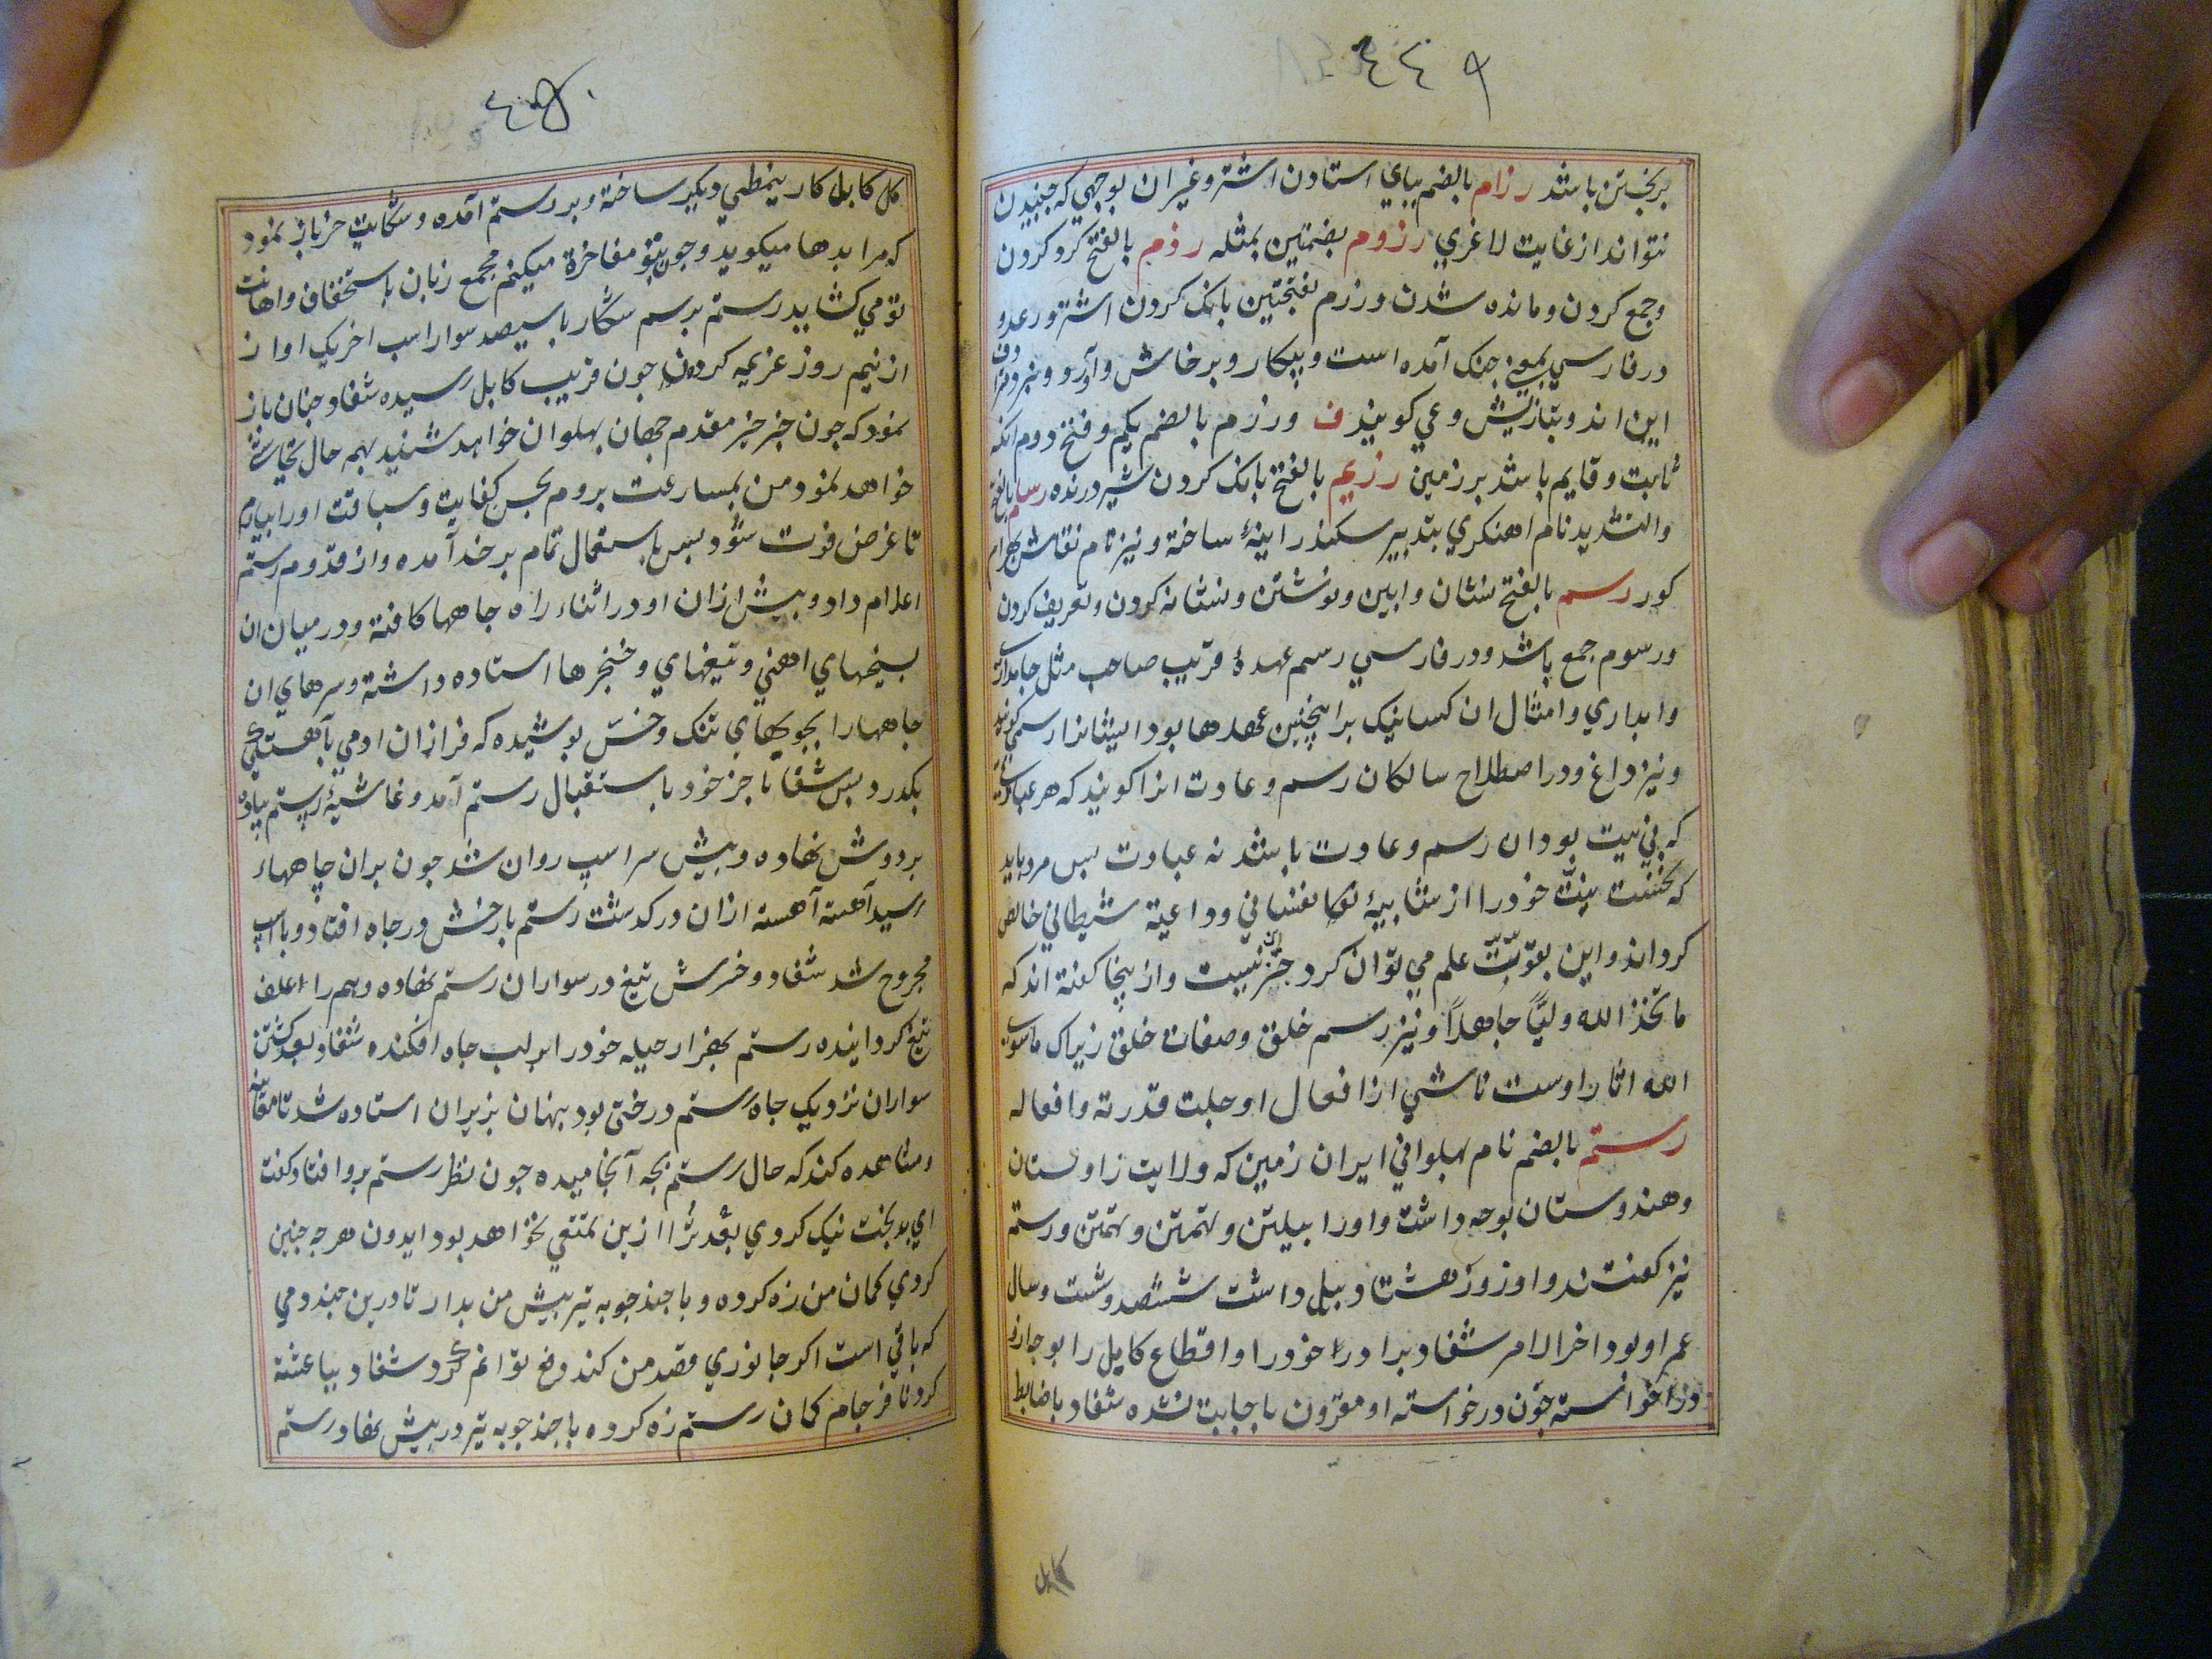 ٤٤٩
بر بختن باشد رزام بالضم بپای استادن اشتر و غیر ان بوجهي که جنبیدن
نتواند از غایت لاغري رزوم بضمتین بمثله رزم بالفتح کرد کردن
و جمع کردن و مانده شدن و رزم بفتحتین بانک کردن اشتر و رعد و
در فارسي بمعني جنک آمده است و پیکار و برخاش و آورد و نبرد
این اند و بتازیش وغي کویند ف ورزم بالضم یکم و فتح دوم انکه
ثابت و قایم باشد بر زمین رزیم بالفتح بانک کردن شیر درنده رسام بالفتح
والتشدید نام اهنکري بتدبیر سکندر اینهٔ ساخته و نیز نام نقاش بهرام
کور رسم بالفتح نشان و ایین و نوشتن و نشانه کردن و تعریف کردن
و رسوم جمع باشد و در فارسي رسم عهدهٔ قریب صاحب مثل جامداري
و ابداري و امثال ان کسانیک برا ینچنین عهدها بود ایشانرا رسمي کویند
و نیز داغ و در اصطلاح سالکان رسم و عادت انرا کویند که هر عبادت
که بي نیت بود ان رسم و عادت باشد نه عبادت بس مرد باید
که نخست نیت خود را از شایبهٔ نفساني و داعیهٔ شیطاني خالص
کرداند و این بقوّت علم مي توان کرد جز نیست و از ینجا کفته اند که
ما تخذ الله ولیّاً جاهلاً و نیز رسم خلق و صفات خلق زیراک ماسوي
الله اثار اوست ناشي از افعال او جلت قدرته و افعاله
رستم بالضم نام پهلواني ایران زمین که ولایت زاولستان
و هندوستان بوجه داشت و اورا بیلتن و تهمتن و تهمتن و رستم
نیز کفتندو او زور هشتاد بیل داشت ششصد و شست و سال
عمر او بود اخر الامر شغاد برادر خود را و اقطاع کابل را بوجاز
خواسته چون درخواسته او مقرون باجابت نشده شغاد با ضابط
کابل
٤٥٠
کل کابل کار ینمطي دیکر ساخته و بر رستم آمده و شکایت خر باز نمود
که مرا بدها میکوید و جون بتو مفاخرة میکنم مجمع زبان باستخفاف و اهانت
تو مي کشاید رستم برسم شکار با سیصد سوار اسب اخریک اواز
از نیم روز عزیمه کردند جون قریب کابل رسیده شغاد جنان باز
نمود که جون خبر مقدم جهان بهلوان خواهد شنید بهمه حال تحاشي
خواهد نمود من بمسارعت بروم بحسن کفایت و سباقت اورا بیارم
تا غرض فوت شود بس باستعمال تمام برخد آمده و از قدوم رستم
اعلام داد و بیش ازان او در اثناء راه جاهها کافته و در میان ان
بسیخهاي اهني و تیغهاي و خنجرها استاده داشته و سرهاي ان
جاهها را بجوبهاي تنک و خس بوشیده که فراز ان ادمي بآهستکي
بکذرد بس شغاد ناجز خود باستقبال رستم آمد و غاشیهٔ رستم پیاده
بر دوش نهاده و بیش سر اسپ روان شد جون بران چاهها
رسید آهسته آهسته ازان در کدشت رستم با رخش در جاه افتاد و با اسپ
مجروح شد شغاد و خسرش تیغ در سواران رستم نهاده و همه را علف
تیغ کردانیده رستم بهزار حیله خود را بر لب جاه افکنده شغاد بعد کشتن
سواران نزدیک جاه رستم درختي بود بنهان بزیر ان استاده شد تا معاینه
و مشاهده کند که حال رستم بجه آنجامیده جون نظر رستم برو افتاد کفت
اي بدبخت نیک کردي بقدر ترا ازین تمتعي نخواهد بود ایدون هرجه جنین
کردي کمان من زه کرده و با جند جوبه تیر بیش من بدار تا درین جند دمي
که باقي است اکر جانوري قصد من کند دفع توانم کرد شغاد بباعثة
کرد نافرجام کمان رستم زه کرده با جند جوبه تیر در بیش نهاد و رستم